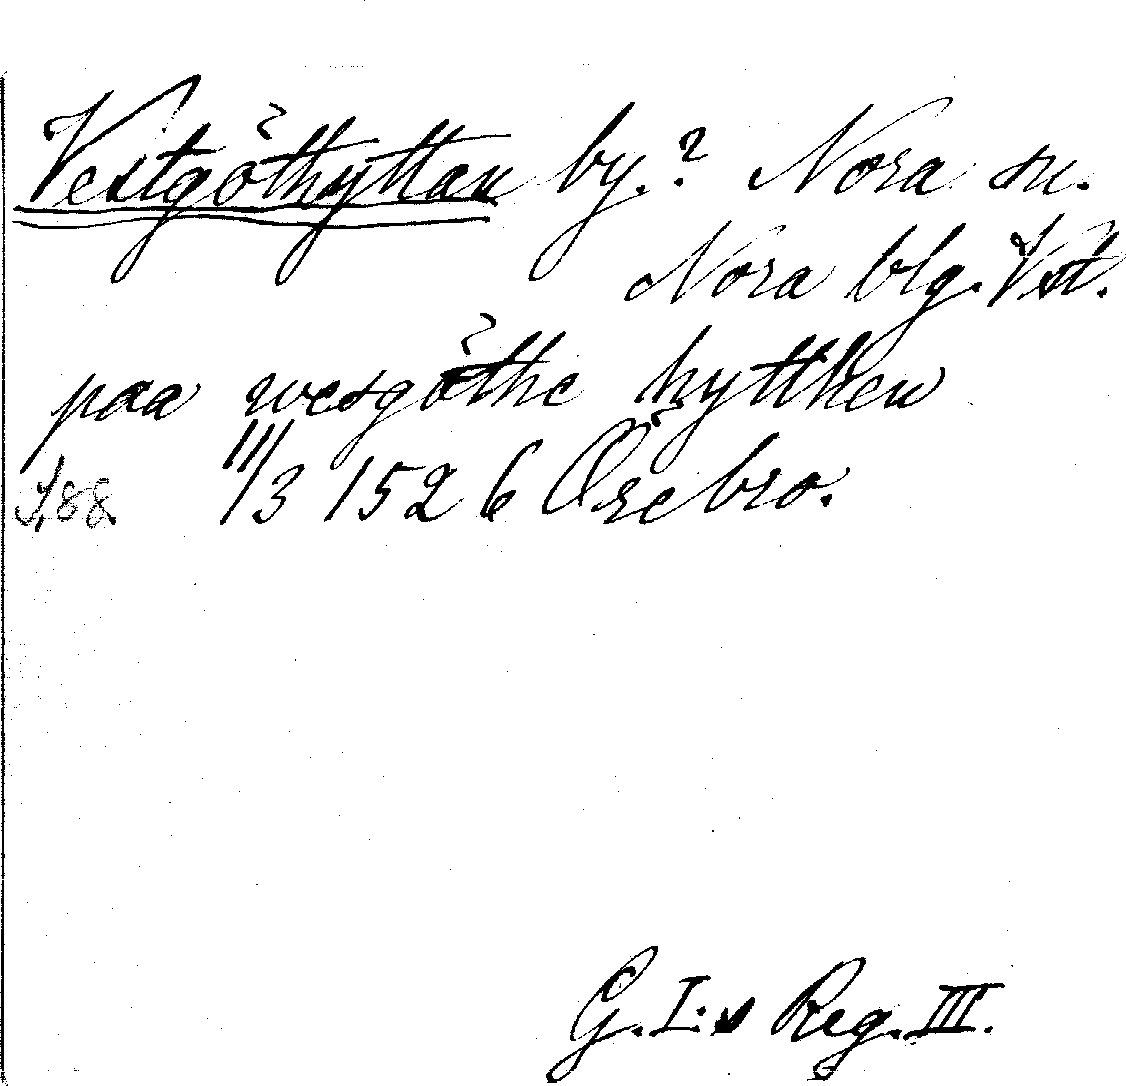 Vestgöthyttan by.? Nora sn.
Nora blg. Vst.
paa wesgöthe hytthen
S. 88. 11/3 1526 Örebro.
G. I:s Reg. III.